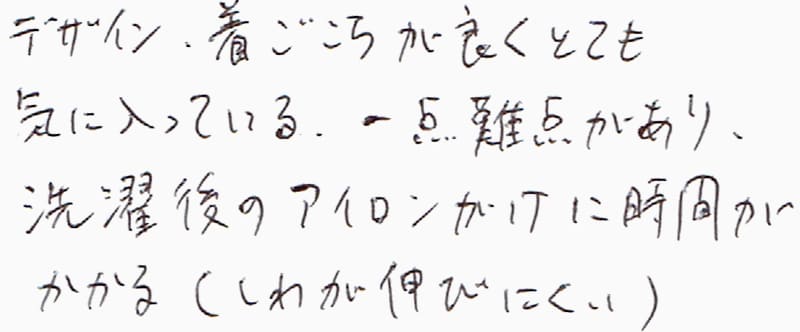 デザイン、着ごこちが良くとても
気に入っている。一点難点があり、
洗濯後のアイロンがけに時間が
かかる(しわが伸びにくい)